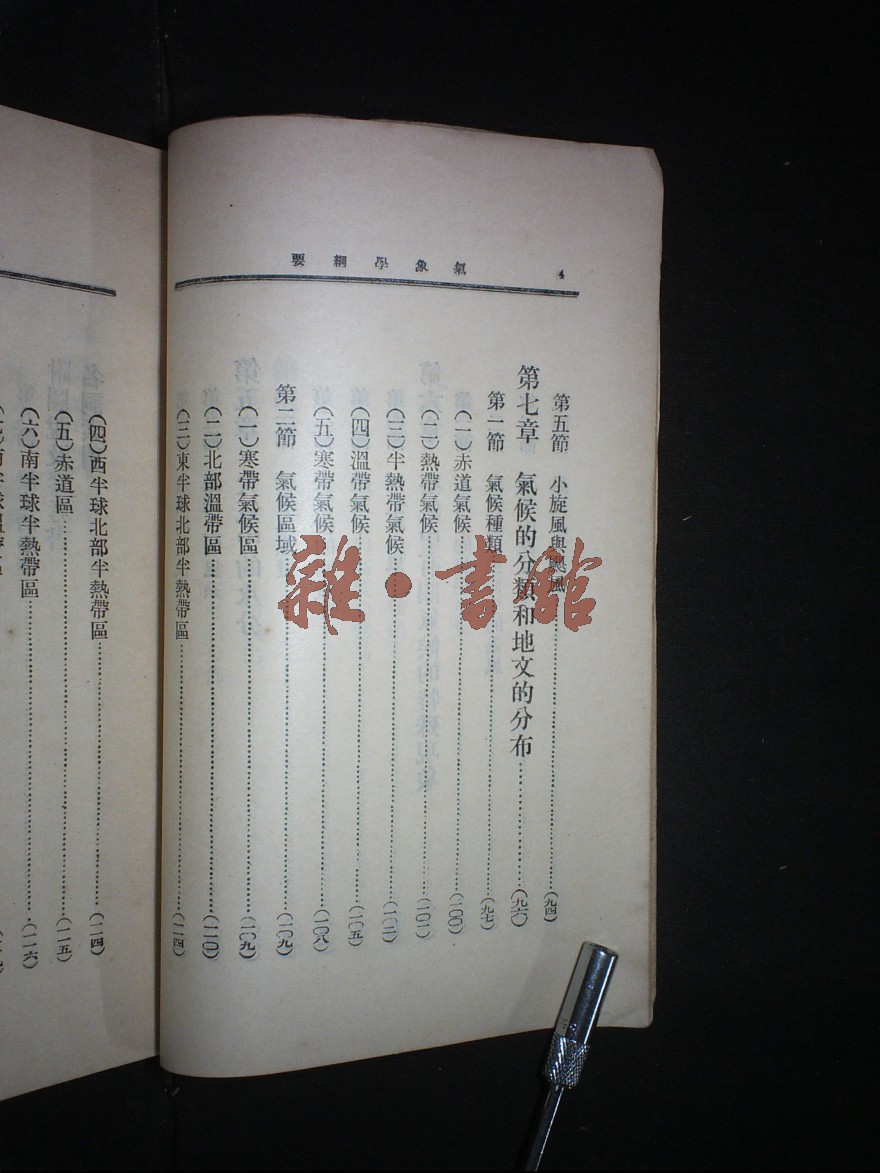 氣象學綱要
4
第五節 小旋風與颶風(九四)
第七章 氣候的分類和地文的分布(九六)
第一節 氣候種類(九七)
(一)赤道氣候(一〇〇)
(二)熱帶氣候
(三)半熱帶氣候
(四)溫帶氣候(一〇五)
(五)寒帶氣候(一〇八)
第二節 氣候區域(一〇九)
(一)寒帶氣候區(一〇九)
(二)北部溫帶區
(三)東半球北部半熱帶區
(四)西半球北部半熱帶區
(五)赤道區(一一五)
(六)南半球半熱帶區(一一六)
雜·書館